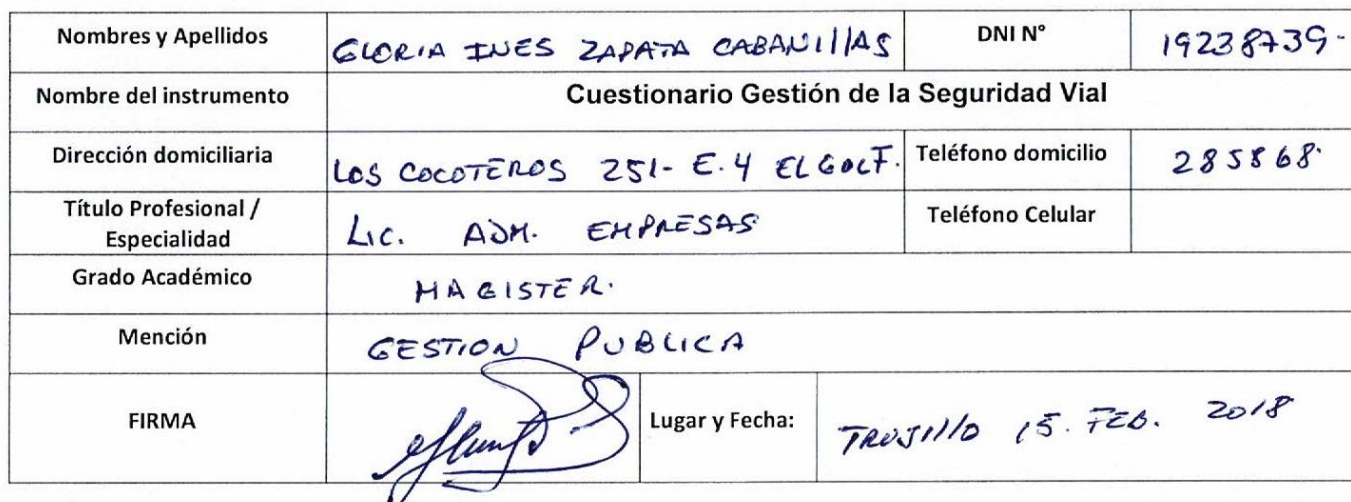 Nombres y Apellidos GLORIA INES ZAPATA CABANIllAS DNI N° 19238739-
Nombre del instrumento Cuestionario Gestión de la Seguridad Vial
Dirección domiciliaria LOS COCOTEROS 251- E.4 EL GOLF. Teléfono domicilio 285868.
Título Profesional / Especialidad LIC. ADM. EMPRESAS Teléfono Celular
Grado Académico MAGISTER.
Mención GESTION PUBLICA
FIRMA Lugar y Fecha: TRUJIllO 15. FEB. 2018